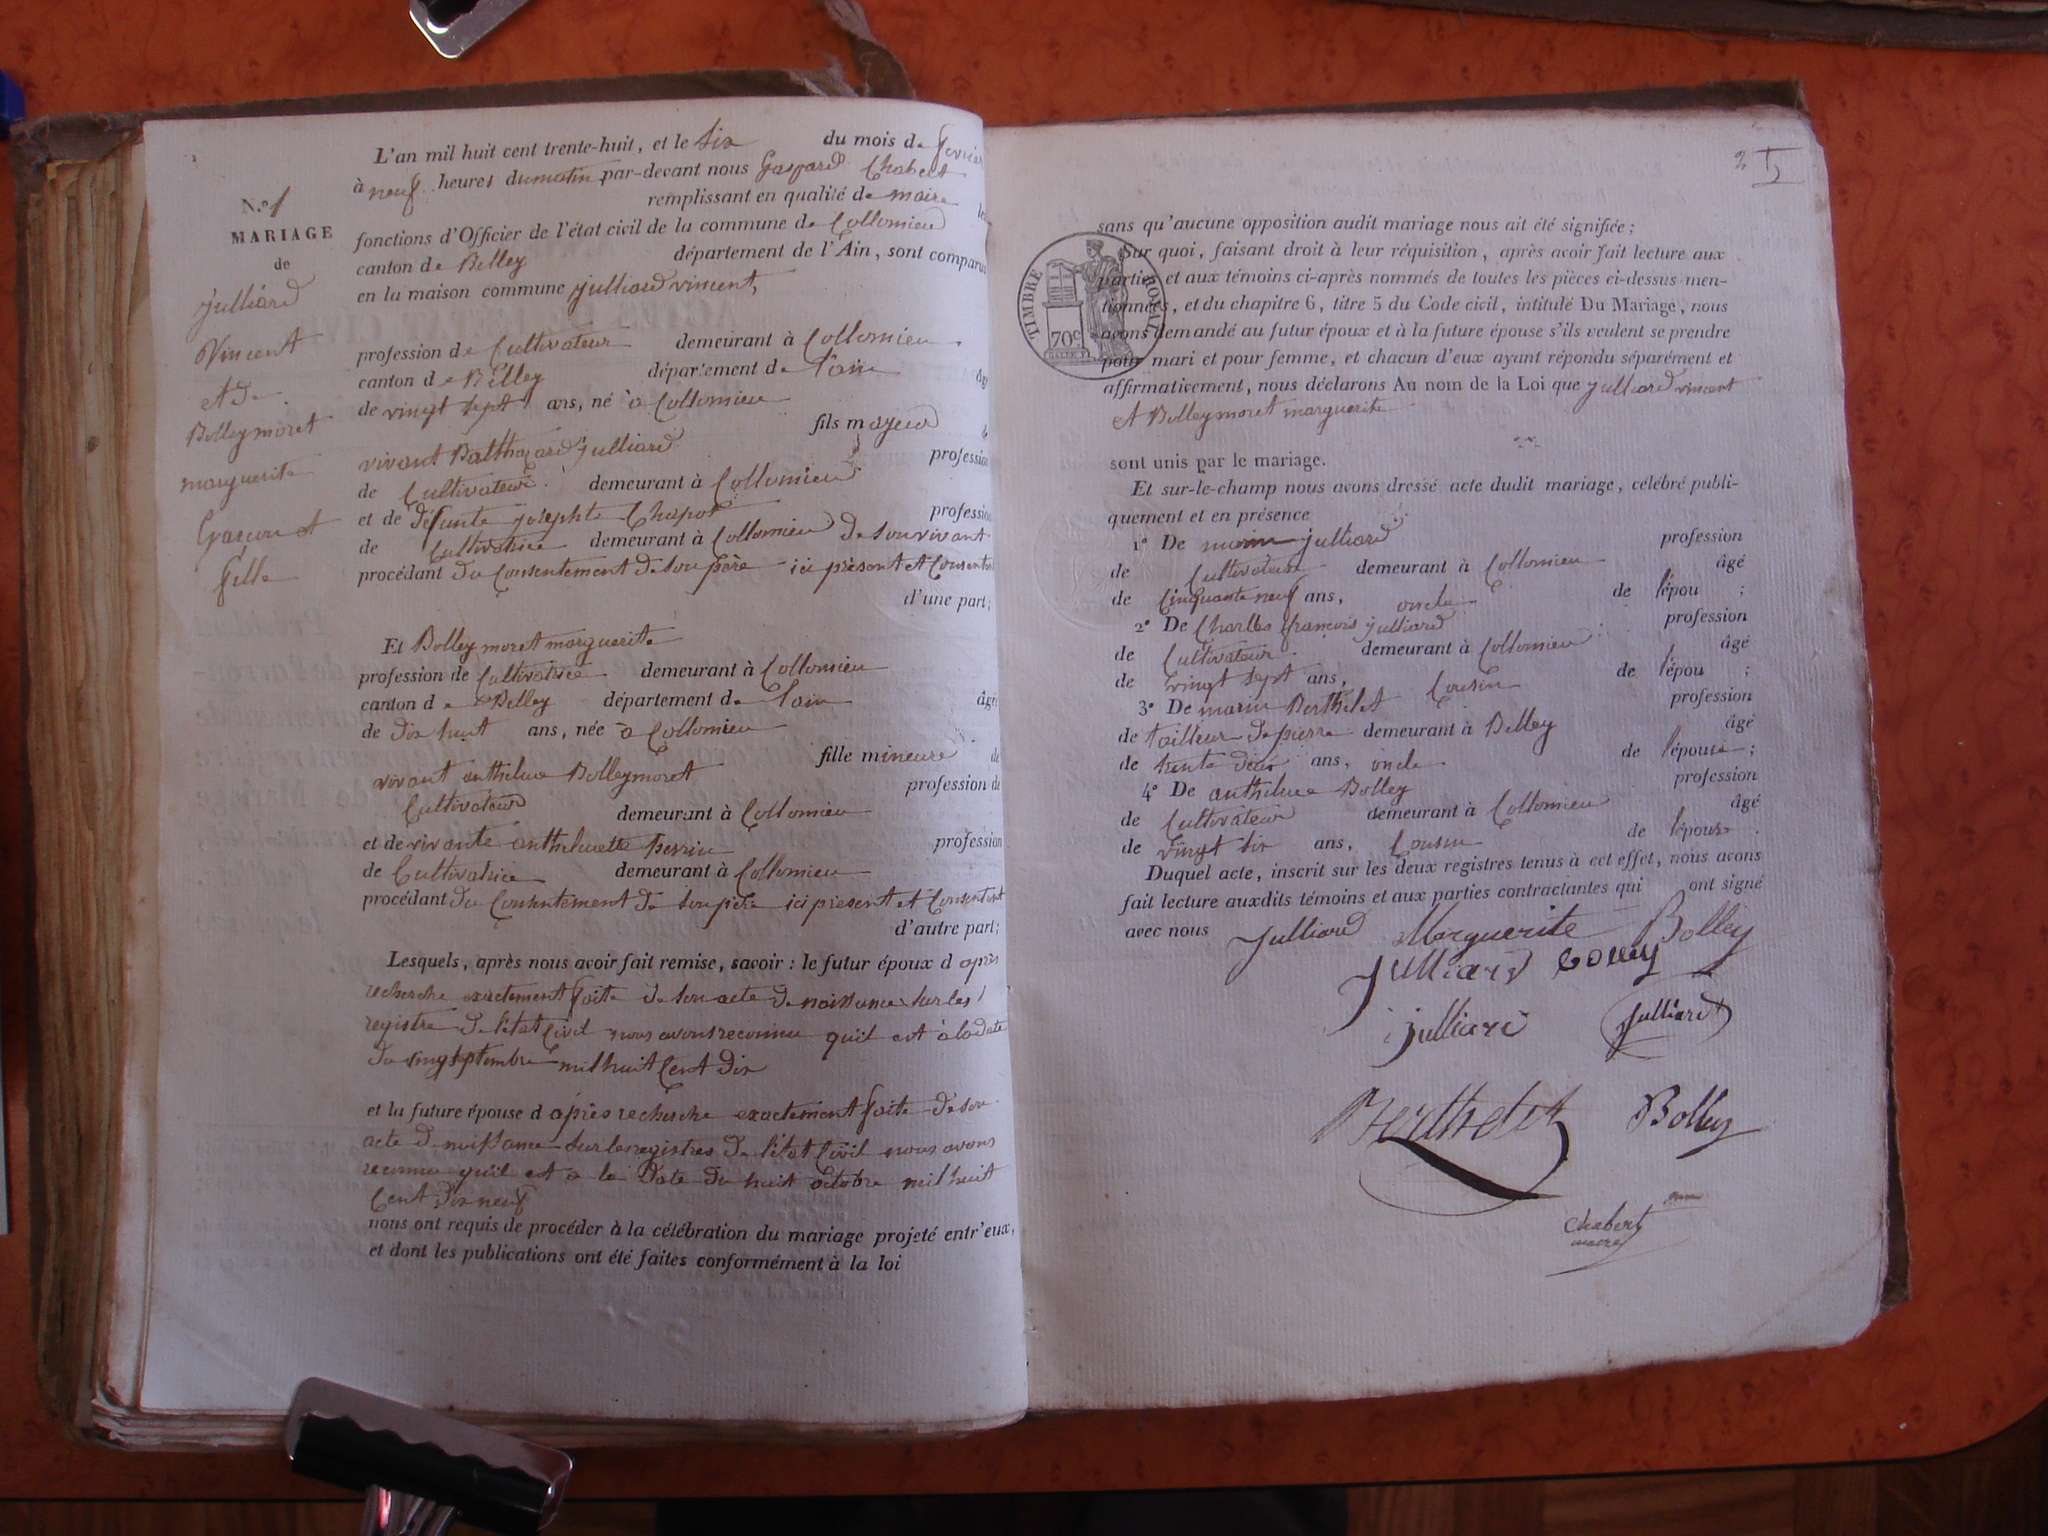 L'an mil huit cent trente-huit, et le six du mois de fevrier
à neuf heures du matin par-devant nous Gaspard Chabert
remplissant en qualité de maire les
fonctions d'Officier de l'état civil de la commune de Collomieu
canton de Belley département de l'Ain, sont comparus
en la maison commune julliard vincent,
profession de Cultivateur demeurant à Collomieu
canton de Belley département de l'ain âgé
de vingt sept ans, né à Collomieu
fils mayeur de
vivant Balthazard julliard profession
de Cultivateur demeurant à Collomieu
et de défunte josephte Chapot profession
de Cultivatrice demeurant à Collomieu de son vivant
procédant du Consentement de son père ici présent et Consentant
d'une part;
Et Bolleymoret marguerite
profession de Cultivatrice demeurant à Collomieu
canton de Belley département de l'ain âgée
de dix huit ans, née à Collomieu
fille mineure de
vivant anthelme Bolleymoret profession de
Cultivateur demeurant à Collomieu
et de vivante anthelmette perrin profession
de Cultivatrice demeurant à Collomieu
procédant du Consentement de son père ici present et Consentant
d'autre part;
Lesquels, après nous avoir fait remise, savoir : le futur époux d après
recherche exactement faite de son acte de naissance sur les
registre de l'état Civil nous avons reconnu qu'il est à la date
du septembre mil huit Cent dix
et la future épouse d après recherche exactement faite de son
acte de naissance sur les registres de l'état Civil nous avons
reconnu qu'il est a la date du huit octobre mil huit
Cent dix neuf
nous ont requis de procéder à la célébration du mariage projeté entr'eux,
et dont les publications ont été faites conformément à la loi
N.º 1
MARIAGE
de
julliard
Vincent
et de
Bolleymoret
marguerite
Garçon et
fille
2
sans qu'aucune opposition audit mariage nous ait été signifiée;
Sur quoi, faisant droit à leur réquisition, après avoir fait lecture aux
parties et aux témoins ci-après nommés de toutes les pièces ci-dessus men-
tionnées, et du chapitre 6, titre 5 du Code civil, intitulé Du Mariage, nous
avons demandé au futur époux et à la future épouse s'ils veulent se prendre
pour mari et pour femme, et chacun d'eux ayant répondu séparément et
affirmativement, nous déclarons Au nom de la Loi que julliard vincent
et Bolleymoret marguerite
sont unis par le mariage.
Et sur-le-champ nous avons dressé acte dudit mariage, célébré publi-
quement et en présence
1º De julliard profession
de Cultivateur demeurant à Collomieu âgé
de Cinquante neuf ans, oncle de l'épou ;
2º De Charles françois julliard profession
de Cultivateur demeurant à Collomieu âgé
de vingt sept ans, Cousin de l'épou ;
3º De marin Berthelet profession
de tailleur de pierre demeurant à Belley âgé
de trente deux ans, oncle de l'épouse ;
4º De anthelme Bolley profession
de Cultivateur demeurant à Collomieu âgé
de vingt six ans, Cousin de l'épouse .
Duquel acte, inscrit sur les deux registres tenus à cet effet, nous avons
fait lecture auxdits témoins et aux parties contractantes qui ont signé
avec nous Julliard Marguerite Bolley
Julliard Bolley
julliard Julliard
Berthelet Bolley
Chabert
maire
TIMBRE ROYAL
70c